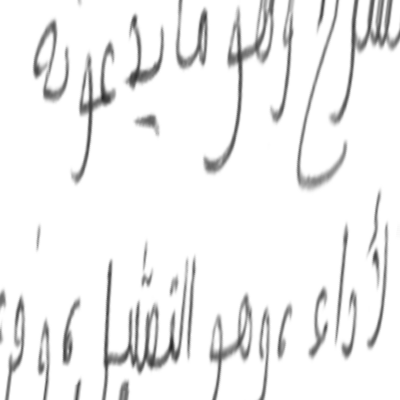 وهو ما يدعونه
لأداء، وهو التمثيل، وفر